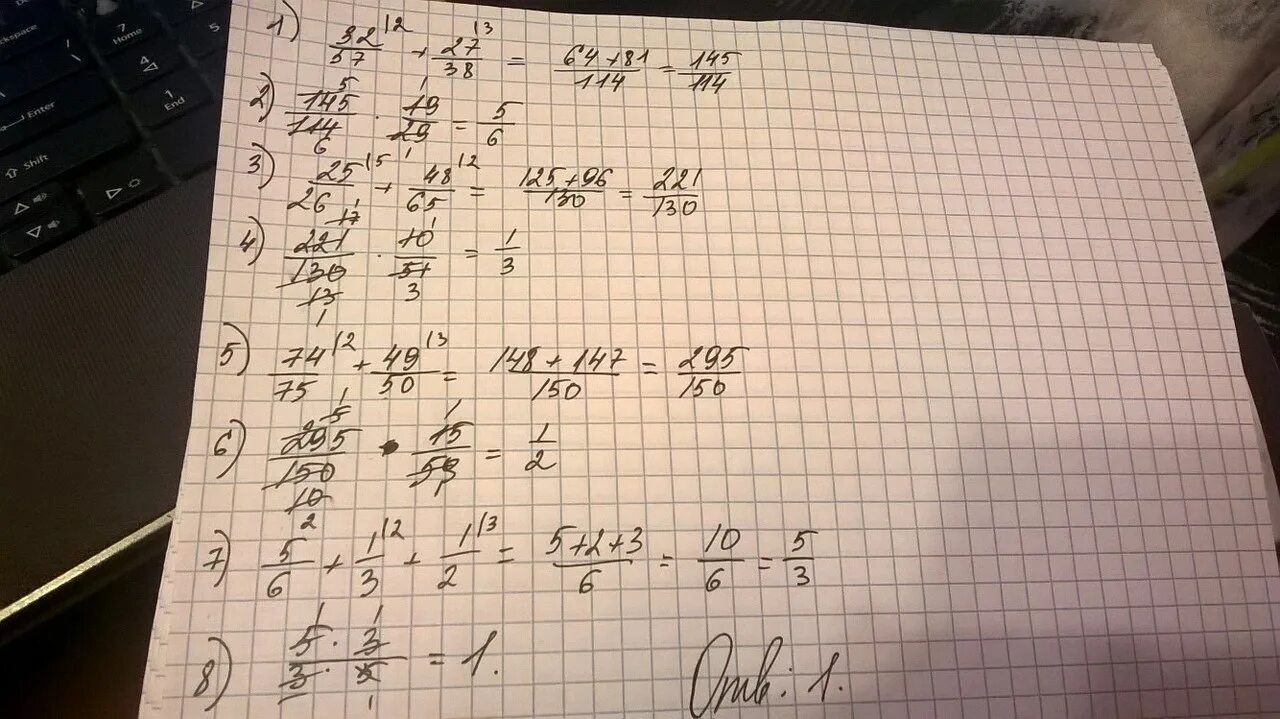 ckspace
7
Home
5
4
Enter
1
End
Shift
1) 32/57 |2 + 27/38 |3 = (64+81)/114 = 145/114
2) 145/114 · 19/29 = 5/6
3) 25/26 |5 + 48/65 |2 = (125+96)/130 = 221/130
4) 221/130 · 10/51 = 1/3
5) 74/75 |2 + 49/50 |3 = (148+147)/150 = 295/150
6) 295/150 · 15/59 = 1/2
7) 5/6 + 1/3 |2 + 1/2 |3 = (5+2+3)/6 = 10/6 = 5/3
8) (5·3)/(3·5) = 1.
Отв: 1.